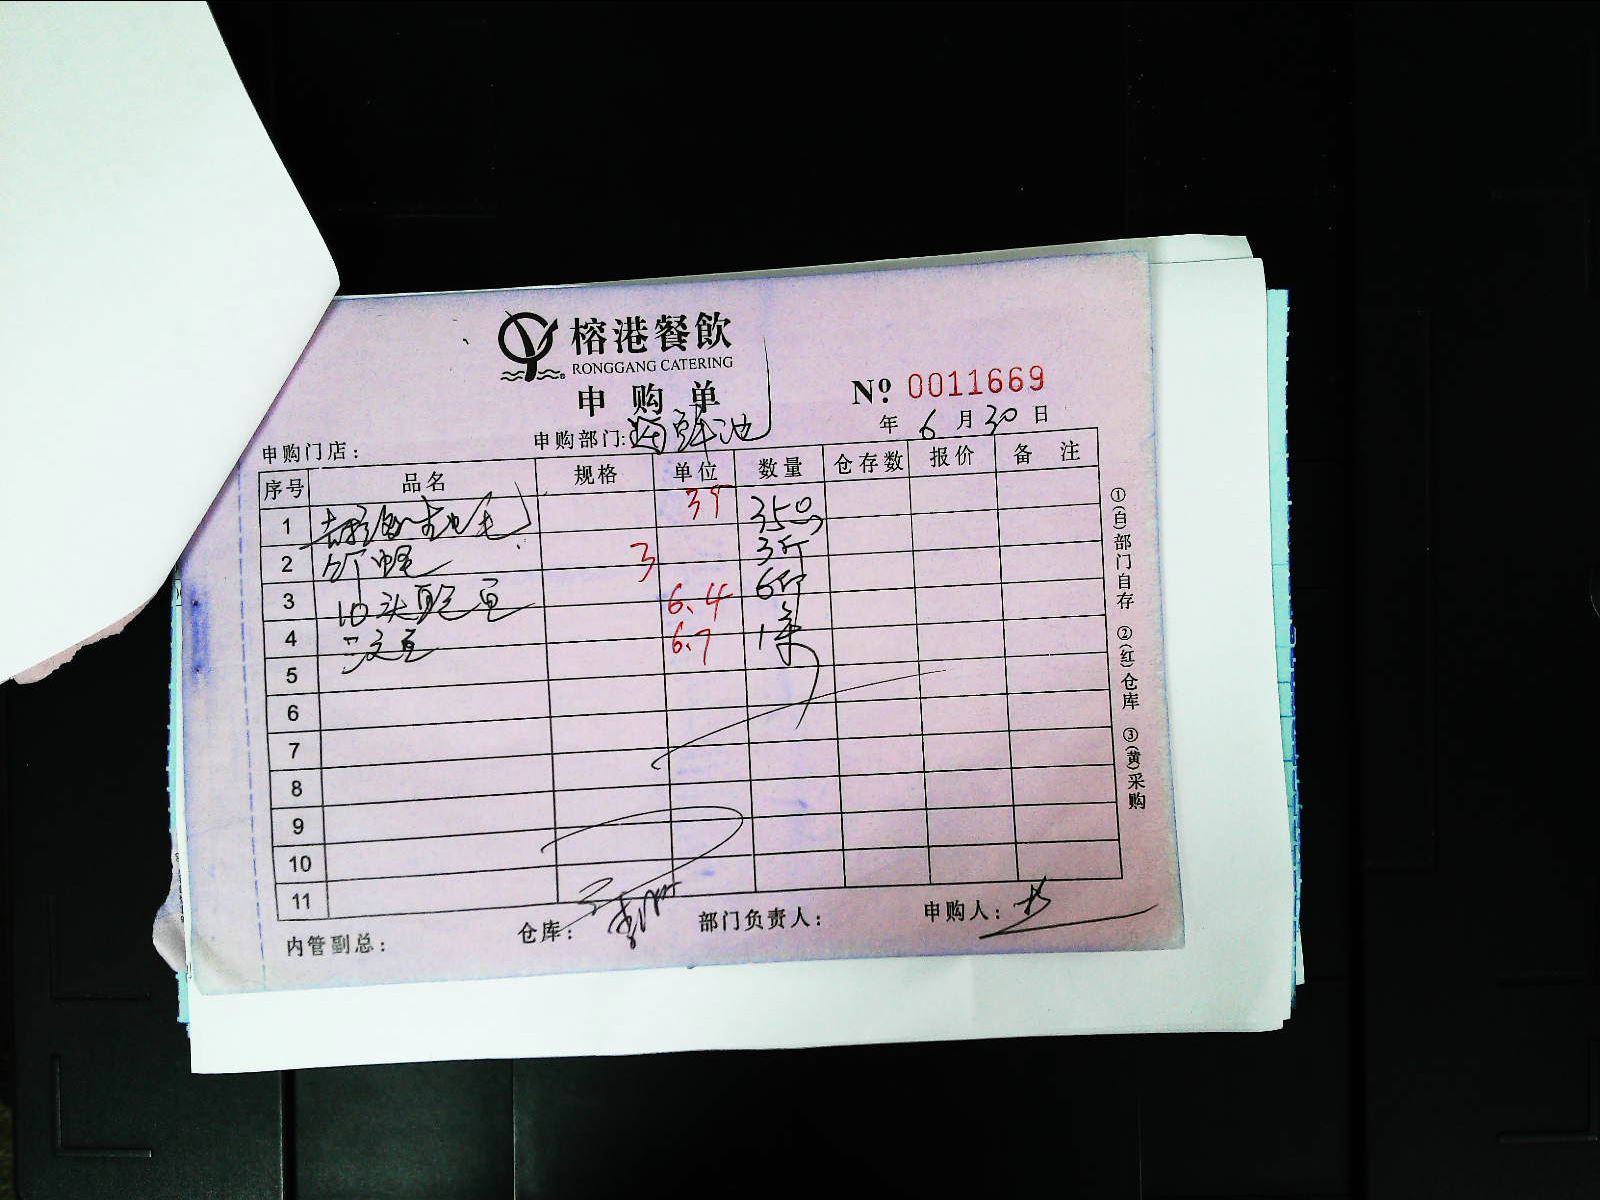 榕港餐飲
RONGGANG CATERING
申购单
Nº 0011669
年 6 月 30 日
申购门店：
申购部门: 海鲜池
序号 品名 规格 单位 数量 仓存数 报价 备注
1 35
2 3 3斤
3 10头鲍鱼 6.4 6斤
4 鱼 6.7 1条
5
6
7
8
9
10
11
内管副总：
仓库：
部门负责人：
申购人：
①(白)部门自存 ②(红)仓库 ③(黄)采购